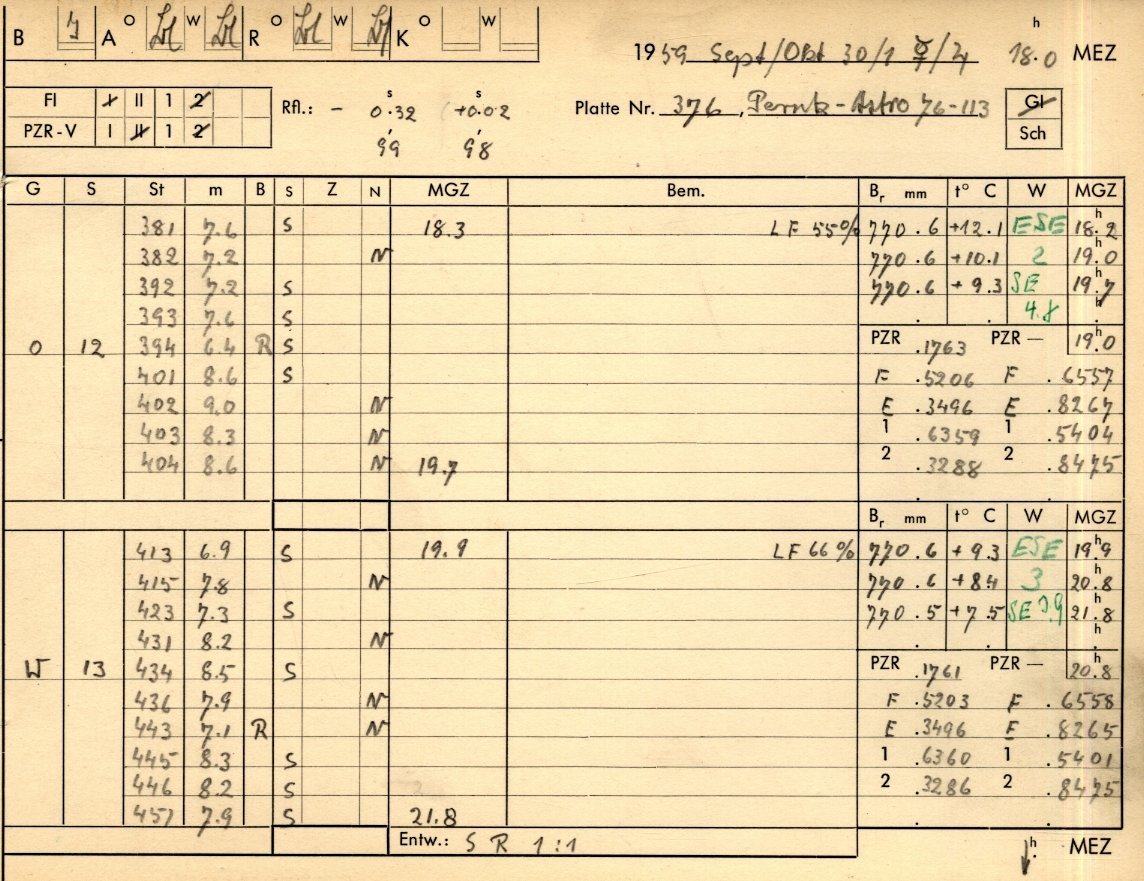 B A O W R O W K O W
1959 Sept/Okt 30/1 ☿/♃ 18.0 h MEZ
FI I II 1 2 Rfl.: – 0.32 s (+0.02 s Platte Nr. 376, Pernk-Astro 76-113 Gl
PZR-V I II 1 2 99 98 Sch
G S St m B S Z N MGZ Bem. Br mm t° C W MGZ
381 7.6 S 18.3 LF 55% 770.6 +12.1 ESE 18.2 h
382 7.2 N 770.6 +10.1 2 19.0
392 7.2 S 770.6 +9.3 SE 19.7 h
393 7.6 S . . 4.8 . h
O 12 394 6.4 R S PZR .1763 PZR – 19.0 h
401 8.6 S F .5206 F .6557
402 9.0 N E .3496 E .8267
403 8.3 N 1 .6359 1 .5404
404 8.6 N 19.7 2 .3288 2 .8475
Br mm t° C W MGZ
413 6.9 S 19.9 LF 66% 770.6 +9.3 ESE 19.9 h
415 7.8 N 770.6 +8.4 3 20.8 h
423 7.3 S 770.5 +7.5 SE 3.9 21.8
431 8.2 N . . . h
W 13 434 8.5 S PZR .1761 PZR – 20.8 h
436 7.9 N F .5203 F .6558
443 7.1 R N E .3496 E .8265
445 8.3 S 1 .6360 1 .5401
446 8.2 S 2 .3286 2 .8475
457 7.9 S 21.8
Entw.: S R 1:1 h. MEZ